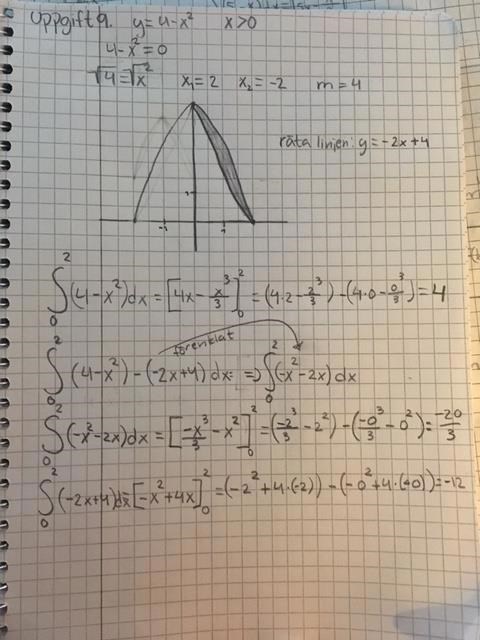 Uppgift 9. y=4-x² x>0
4-x²=0
√4=√x² x₁=2 x₂=-2 m=4
räta linjen: y=-2x+4
∫₀² (4-x²)dx = [4x - x³/3]₀² = (4·2 - 2³/3) - (4·0 - 0³/3) = 4
förenklat
∫₀² (4-x²) - (-2x+4) dx = ⇒ ∫₀² (-x²-2x) dx
∫₀² (-x²-2x) dx = [-x³/3 - x²]₀² = (-2³/3 - 2²) - (-0³/3 - 0²) = -20/3
∫₀² (-2x+4) dx = [-x²+4x]₀² = (-2²+4·(-2)) - (-0²+4·(-0)) = -12